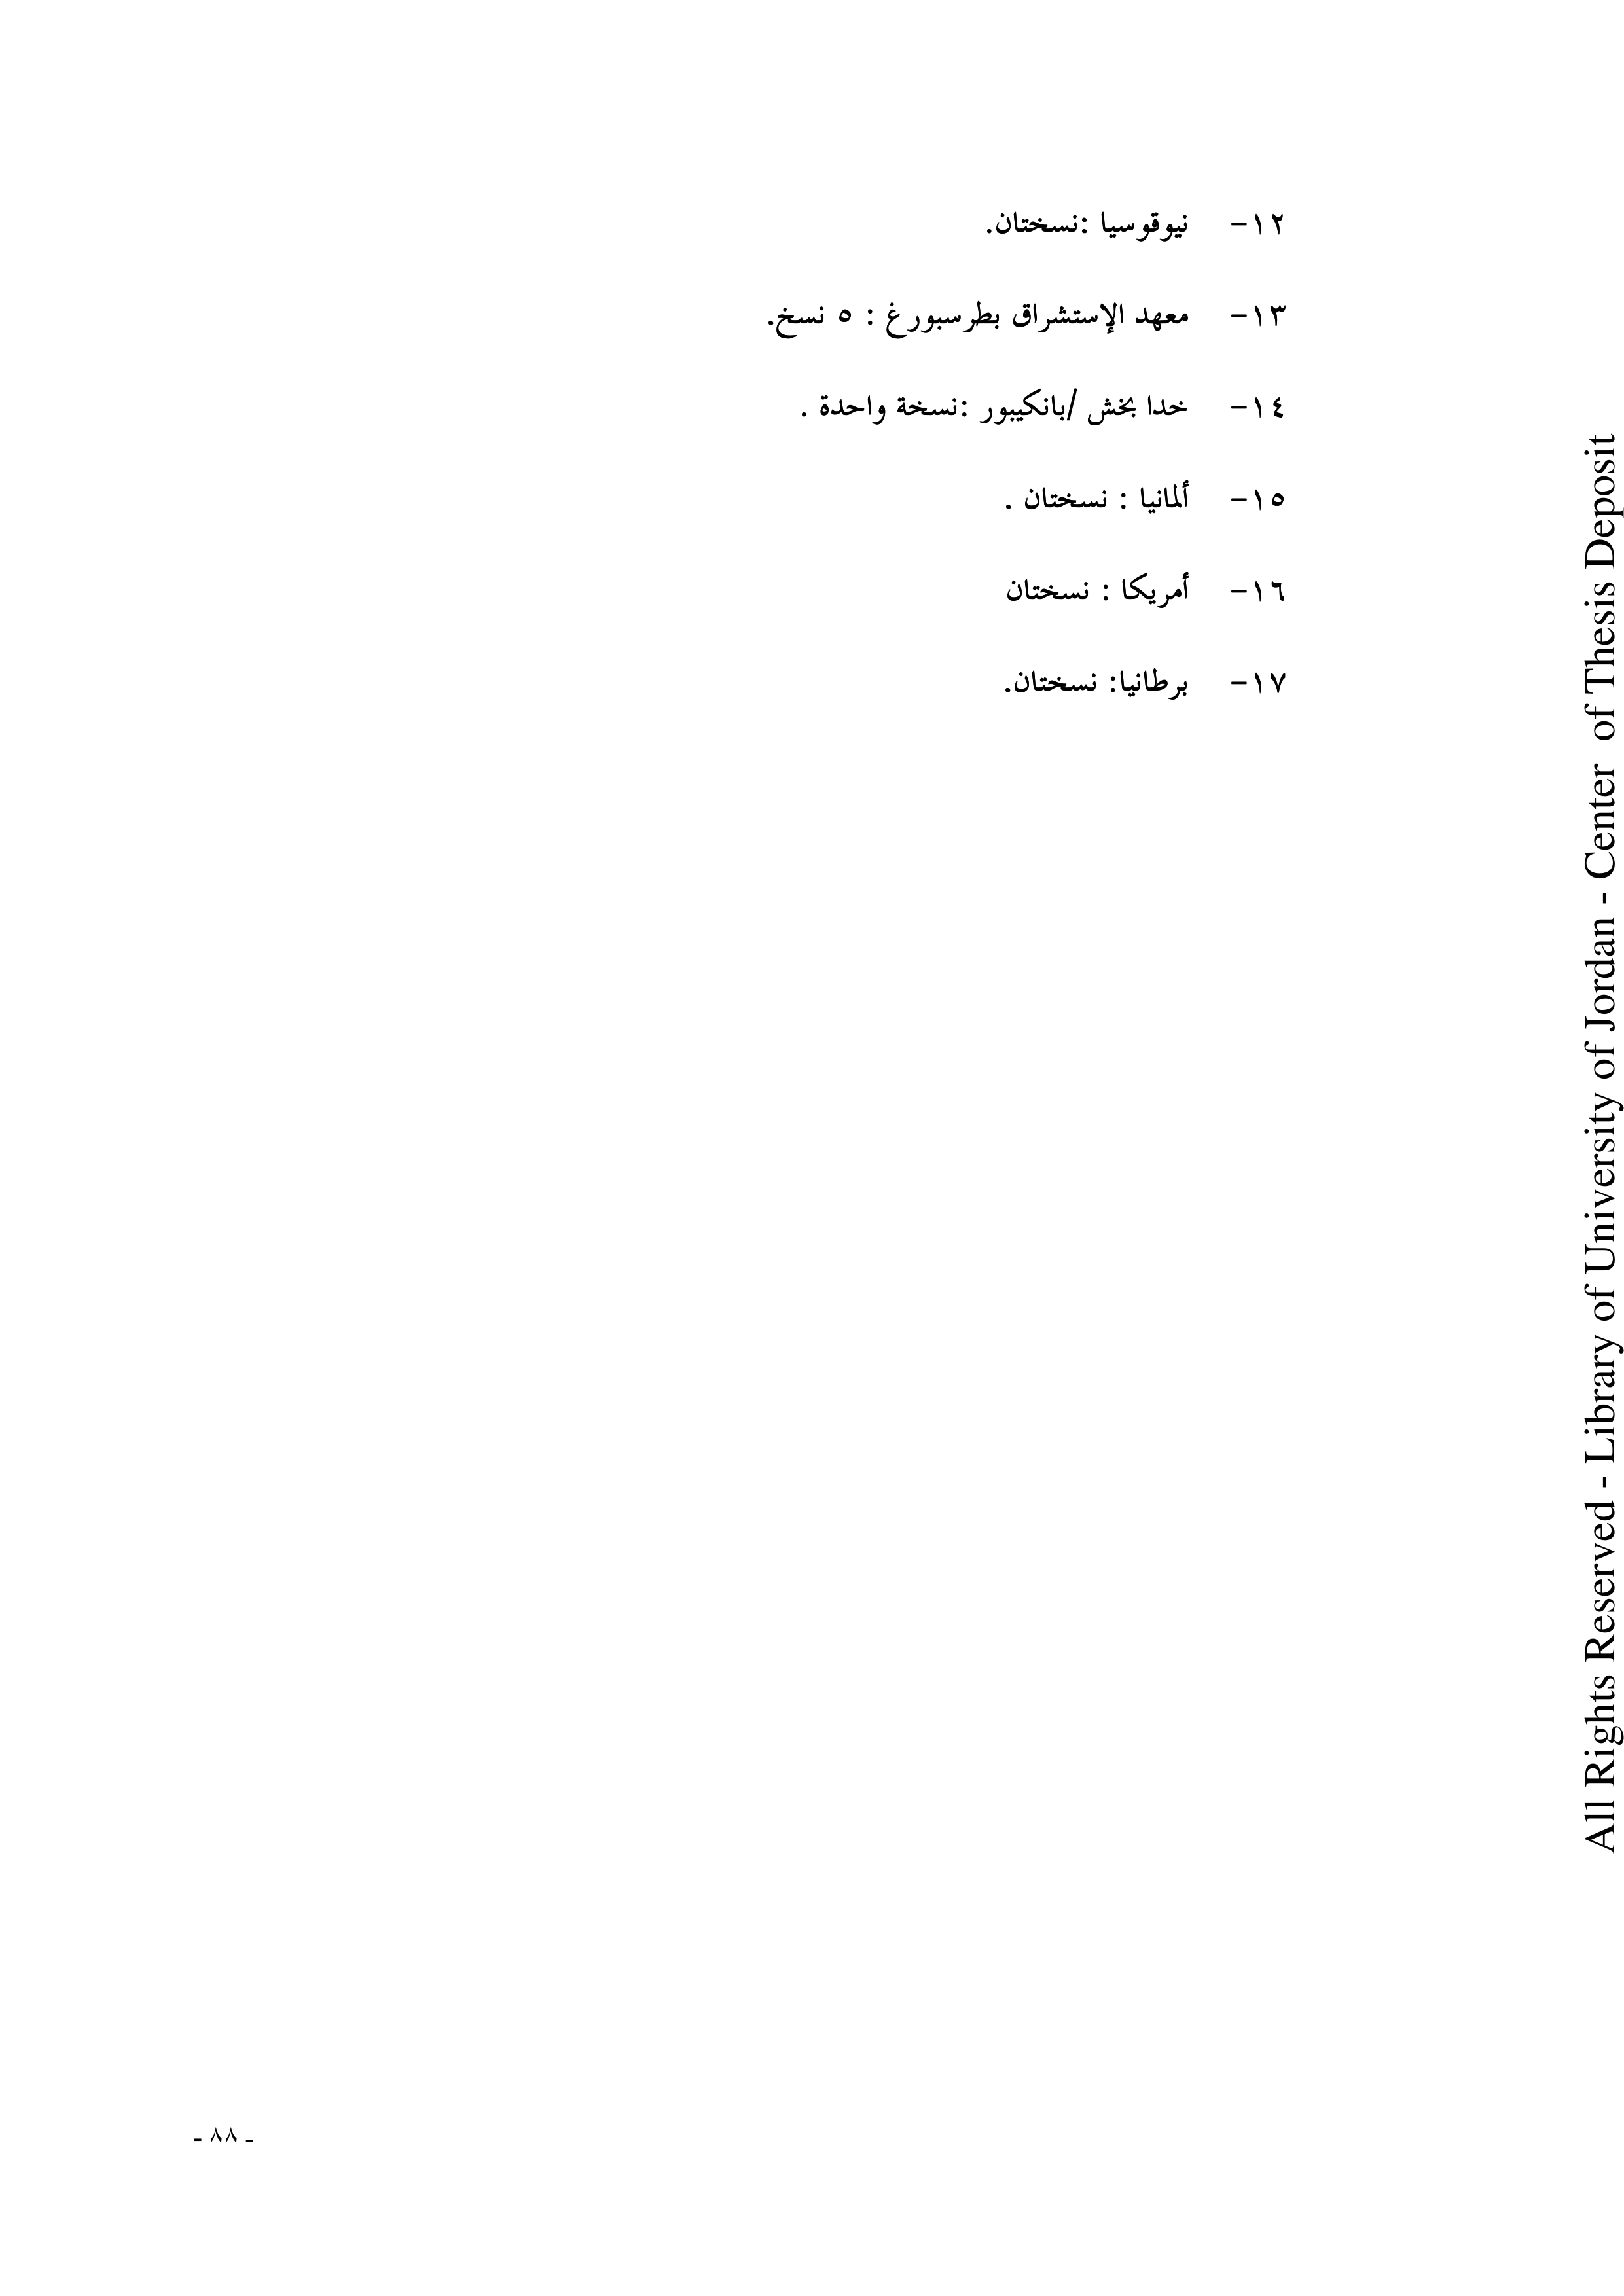 ١٢- نيوقوسيا :نسختان.
١٣- معهد الإستشراق بطرسبورغ : ٥ نسخ.
١٤- خدا بخش /بانكيبور :نسخة واحدة .
١٥- ألمانيا : نسختان .
١٦- أمريكا : نسختان
١٧- برطانيا: نسختان.
All Rights Reserved - Library of University of Jordan - Center of Thesis Deposit
- ٨٨ -